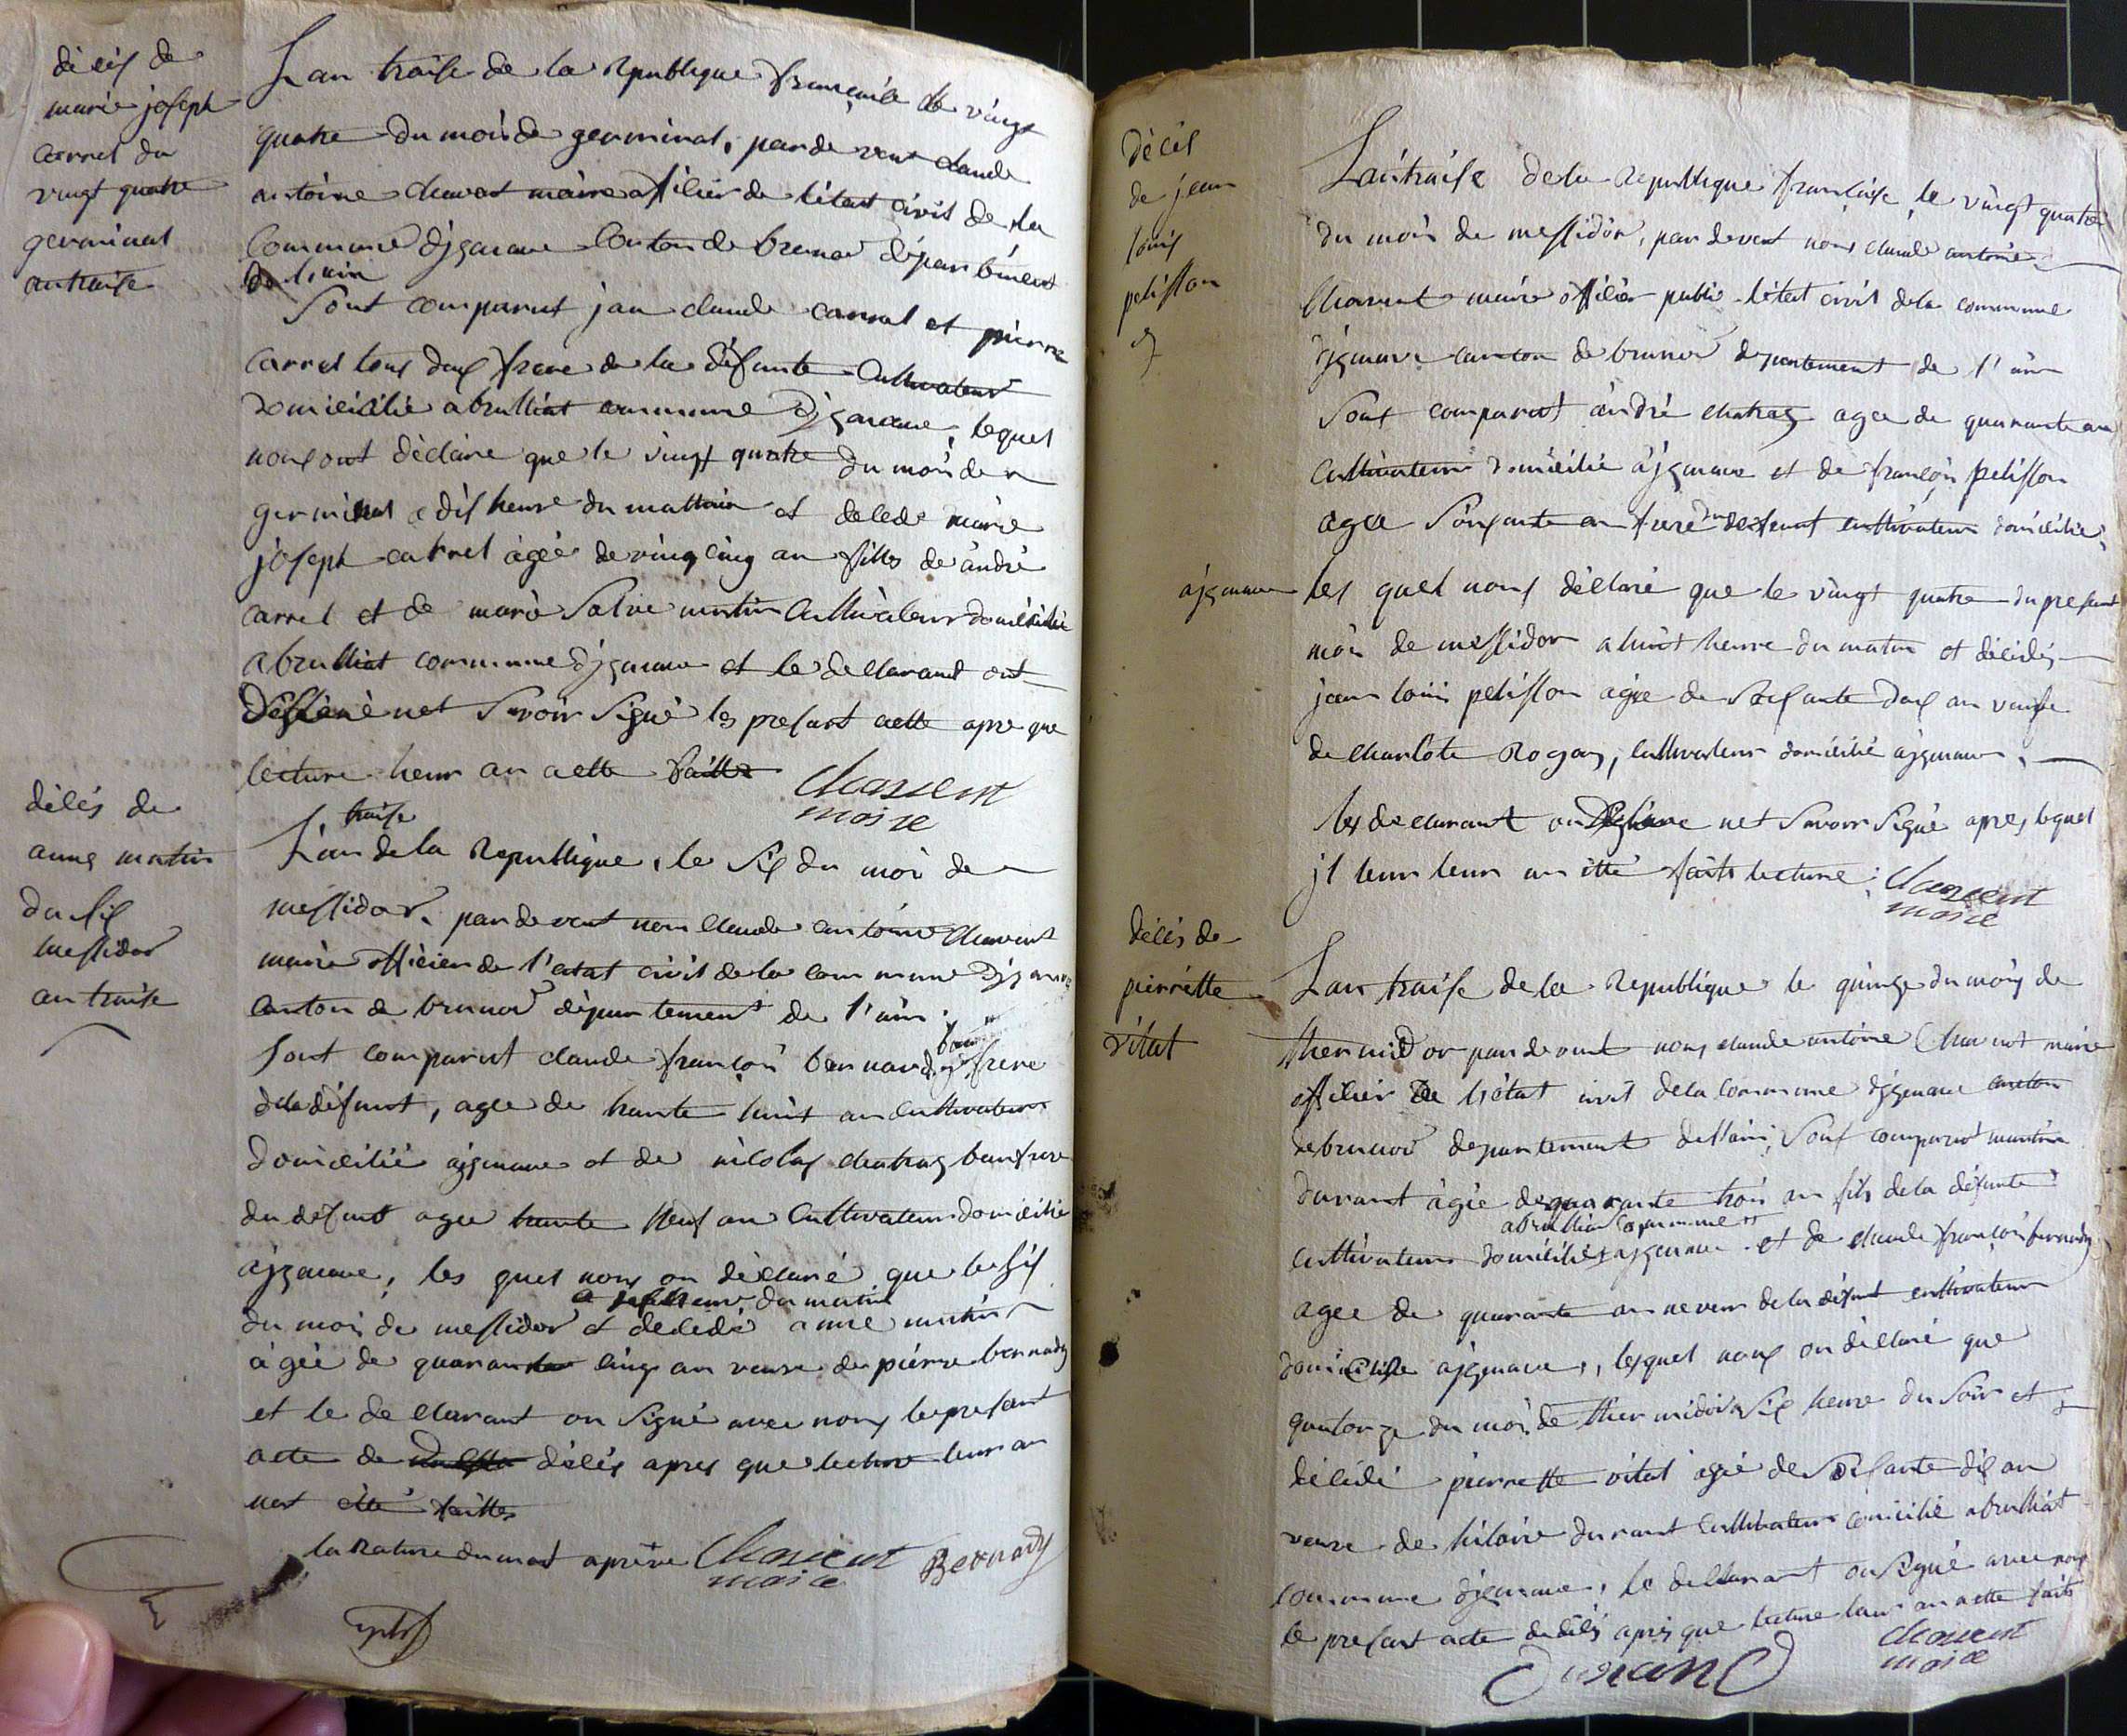 décés de
marie joseph
carrel du
vingt quatre
germinal
an traise
L'an traise de la republique française le vingt
quatre du mois de germinal, par de vant claude
antoine charvet maire offisier de l'état civil de la
commune d'jzernave canton de brenod département
de l'ain
Sont comparut jan claude carrel et pierre
carrel tous deux frere de la défunte cultivateur
domicilié a brulliat commune d'jzernave, lequel
nous ont déclaré que le vingt quatre du mois de
germinal a dis heure du mattin et décédé marie
joseph carrel agée de vingt cinq an fille de andré
carrel et de marie martin cultivateur domicilié
a brulliat commune d'jzernave et le declarant ont
net savoir signé les presant actte apre que
lecture leur an actte faitte
maire
délés de
anne martin
du six
messidor
an traise
traise
L'an de la republique, le six du moi de
messidor, par de vant nous claude antoine
maire officier de l'etat civil de la commune
canton de brenod département de l'ain.
sont comparut claude françoi bernardy frere
de la défunt, agee de trante huit an cultivateur
domicilié ajzernave et de nicolas chatrag baufrere
du défunt agee trante neuf an cultivateur domicilié
ajzernave, les quel nous on déclaré que le six
a heure du matin
du mois de messidor et décédé anne martin
agée de quarante cinq an veuve de pierre bernady
et le declarant on signé avec nous le presant
acte de délés apres que lecture leur an
net etté faitte
maire Bernady
Décés
de jean
louis
pelisson
L'an traise de la republique française, le vingt quatre
du mois de messidor, par devent nous claude antoine
maire offisier public l'état civil de la commune
d'jzernave canton de brenod departement de l'ain
Sont comparut andré chatrag agee de quarante an
cultivateur domicilié ajzernave et de françois pelisson
agee soixante an frere du defunt cultivateur domicilié
ajzernave les quel nous déclaré que le vingt quatre du presant
mois de messidor a huit heure du matin et décédé
jean louis pelisson agée de soisante deux an veuve
de charlote Rogay, cultivateur domicilié ajzernave.
les declarant on net savoir signé apres lequel
jl leur leur an etté faite lecture
maire
délés de
pierrette
vitat
L'an traise de la republique le quinze du mois de
thermidor par devant nous claude antoine maire
officier de l'état civil de la commune d'jzernave canton
de brenod departement de l'ain, sont comparut martin
durant agée de quarante trois an fils de la défunte
a brulliat commune
cultivateur domicilié ajzernave et de claude françois bernady
agee de quarante an neveu de la défunt cultivateur
domicilié ajzernave, lesquel nous on déclaré que
quatorze du mois de thermidor a six heure du soir et
décédé pierrette vitat agée de soisante dix an
veuve de hilaire durant cultivateur domicilié a brulliat
commune d'jzernave, le declarant on signé avec nous
le presant acte de délés apres que lecture leur an aette faite
maire
Durand